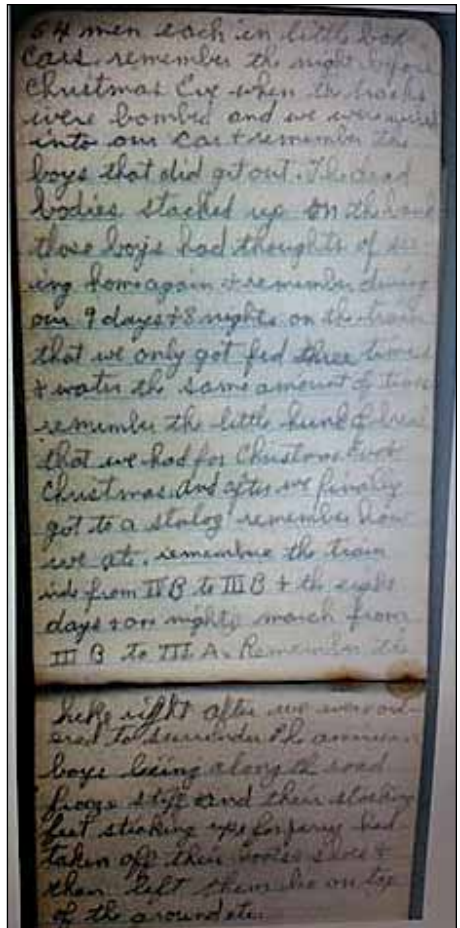 64 men each in little box
cars. remember the night before
Christmas Eve when the tracks
were bombed and we were wired
into our car & remember the
boys that did get out. The dead
bodies stacked up on the bank
those boys had thoughts of see-
ing home again & remember during
our 9 days & 8 nights on the train
that we only got fed three times
& water the same amount of times
remember the little hunk of bread
that we had for Christmas Eve &
Christmas. and after we finally
got to a stalag remember how
we ate. remember the train
ride from IV B to III B & the eight
days & one nights march from
III B to III A. Remember the
hike right after we were ord-
ered to surrender the american
boys laying along the road
froze stiff and their stocking
feet sticking up for jerry had
taken off their shoes &
then left them lie on top
of the ground etc.